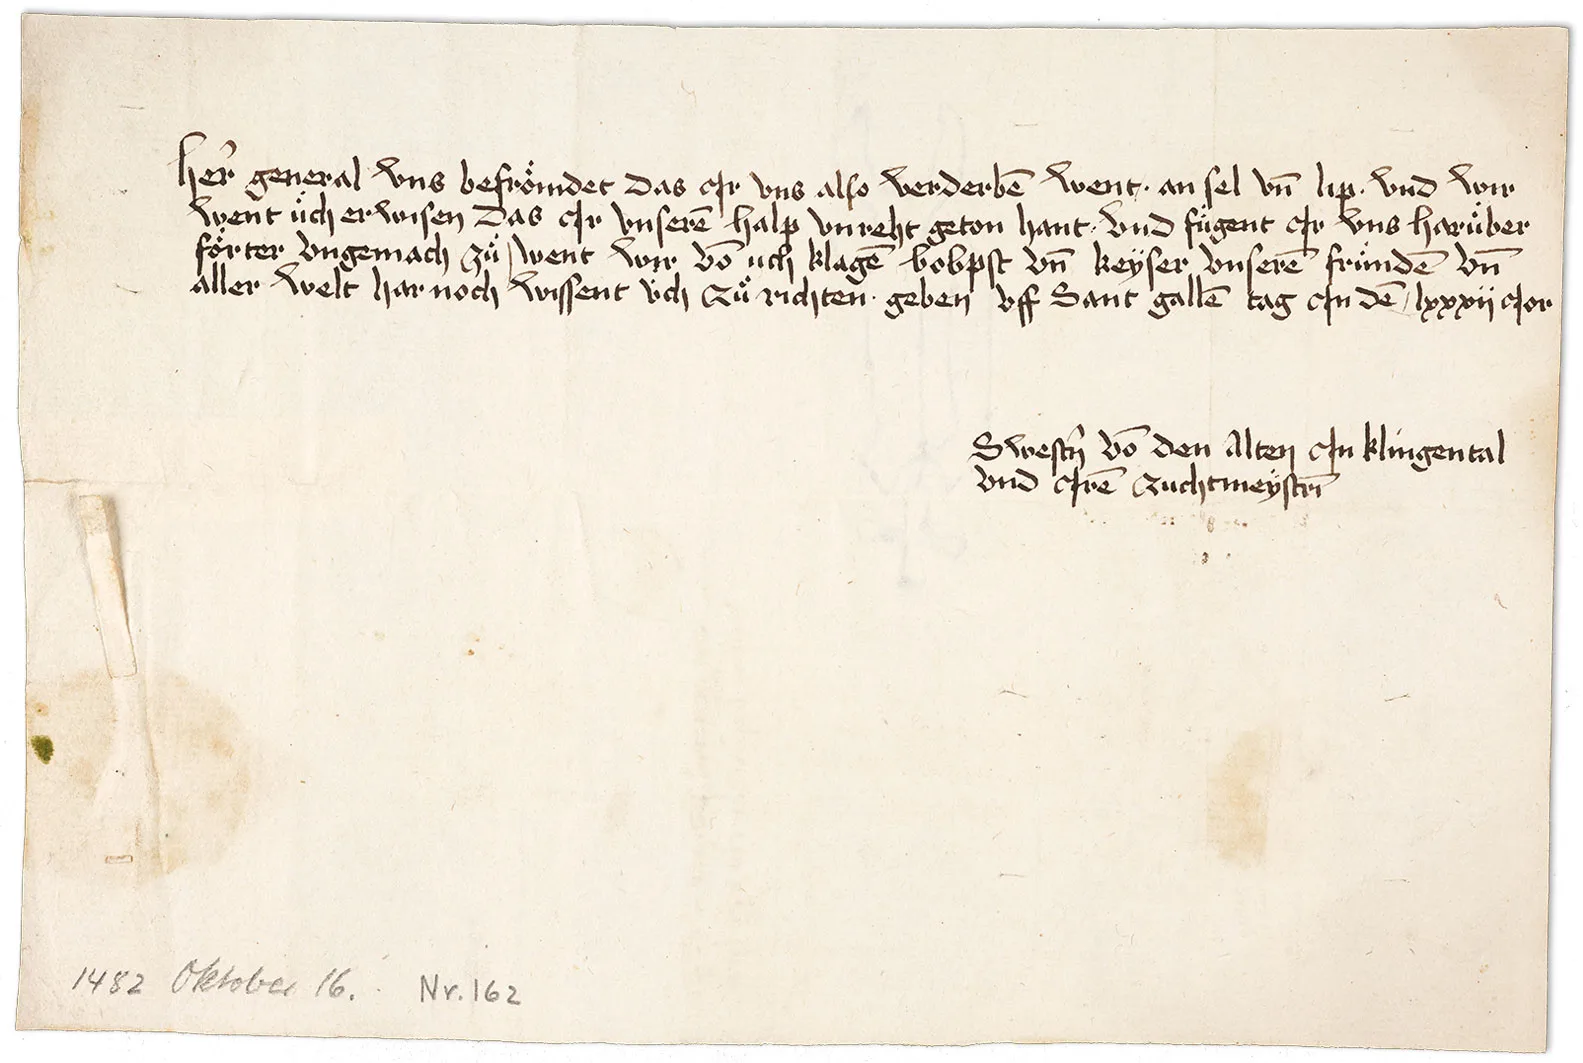 her̄ general vns befrömdet das Ir vns also verderbē went · an sel vn̄ lip · vnd wir
went üch erwisen das Ir vnserē halp vnreht geton hant · vnd fügent Ir vns harüber
förter vngemach zů / went wir vō uch klagē bobpst vn̄ keÿser vnserē fründē vn̄
aller welt har noch wissent üch zů richten · geben vff Sant gallē tag In dē / lxxxii Ior
Swestn̄ vō den Alten In klingental
vnd Irē zuchtmeÿstrī
1482 Oktober 16. Nr. 162